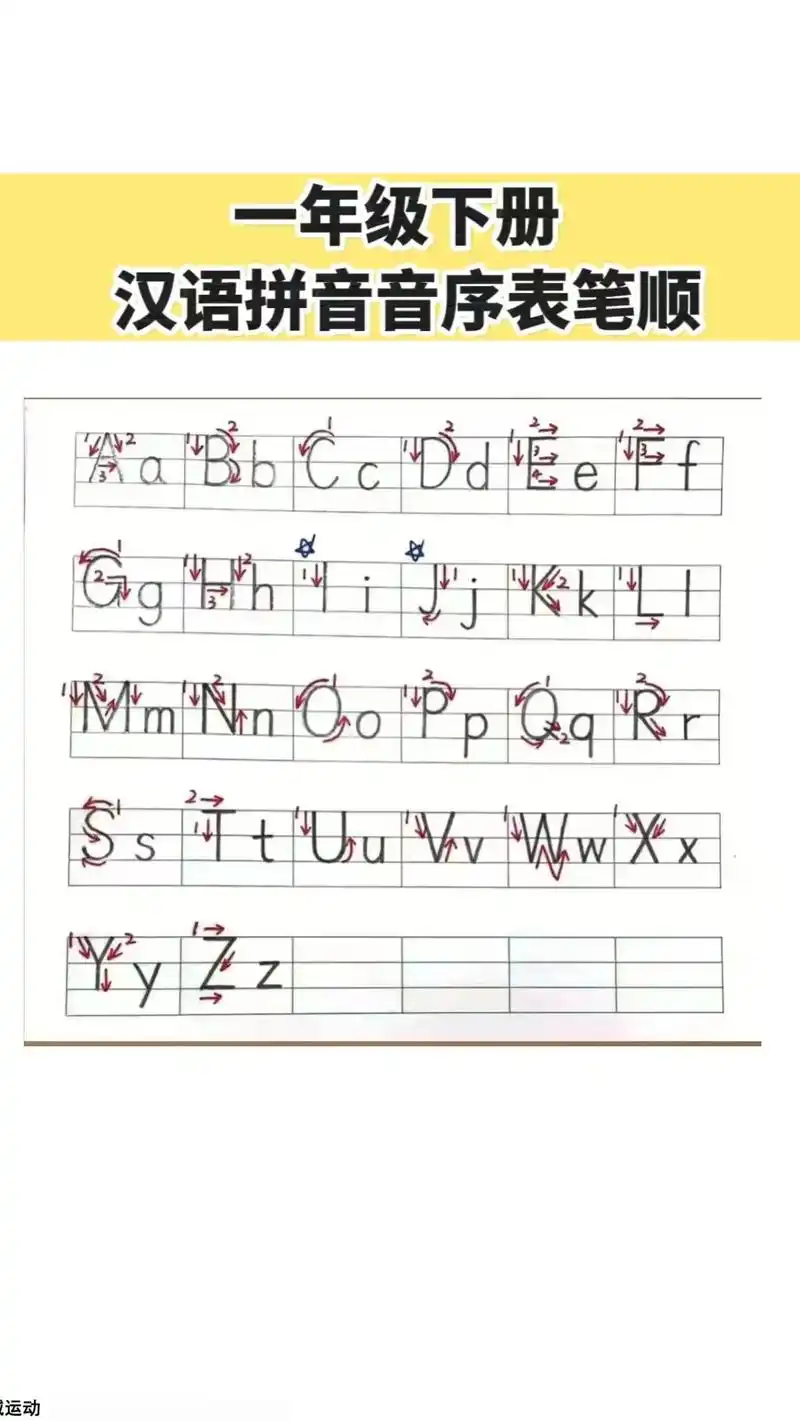 一年级下册
汉语拼音音序表笔顺
A a B b C c D d E e F f
G g H h I i J j K k L l
M m N n O o P p Q q R r
S s T t U u V v W w X x
Y y Z z
运动